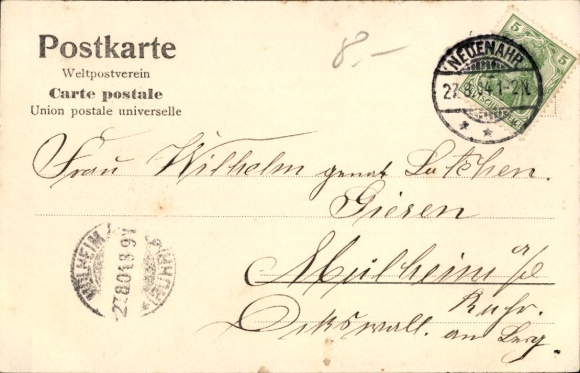 Postkarte
Weltpostverein
Carte postale
Union postale universelle
8.-
5 5
NEUENAHR
27.8.04.1-2N.
Frau Wilhelm genat
Giesen
Mülheim a/d
Ruhr.
am Berg.
MÜLHEIM
27.8.04.8-9N
RUHR